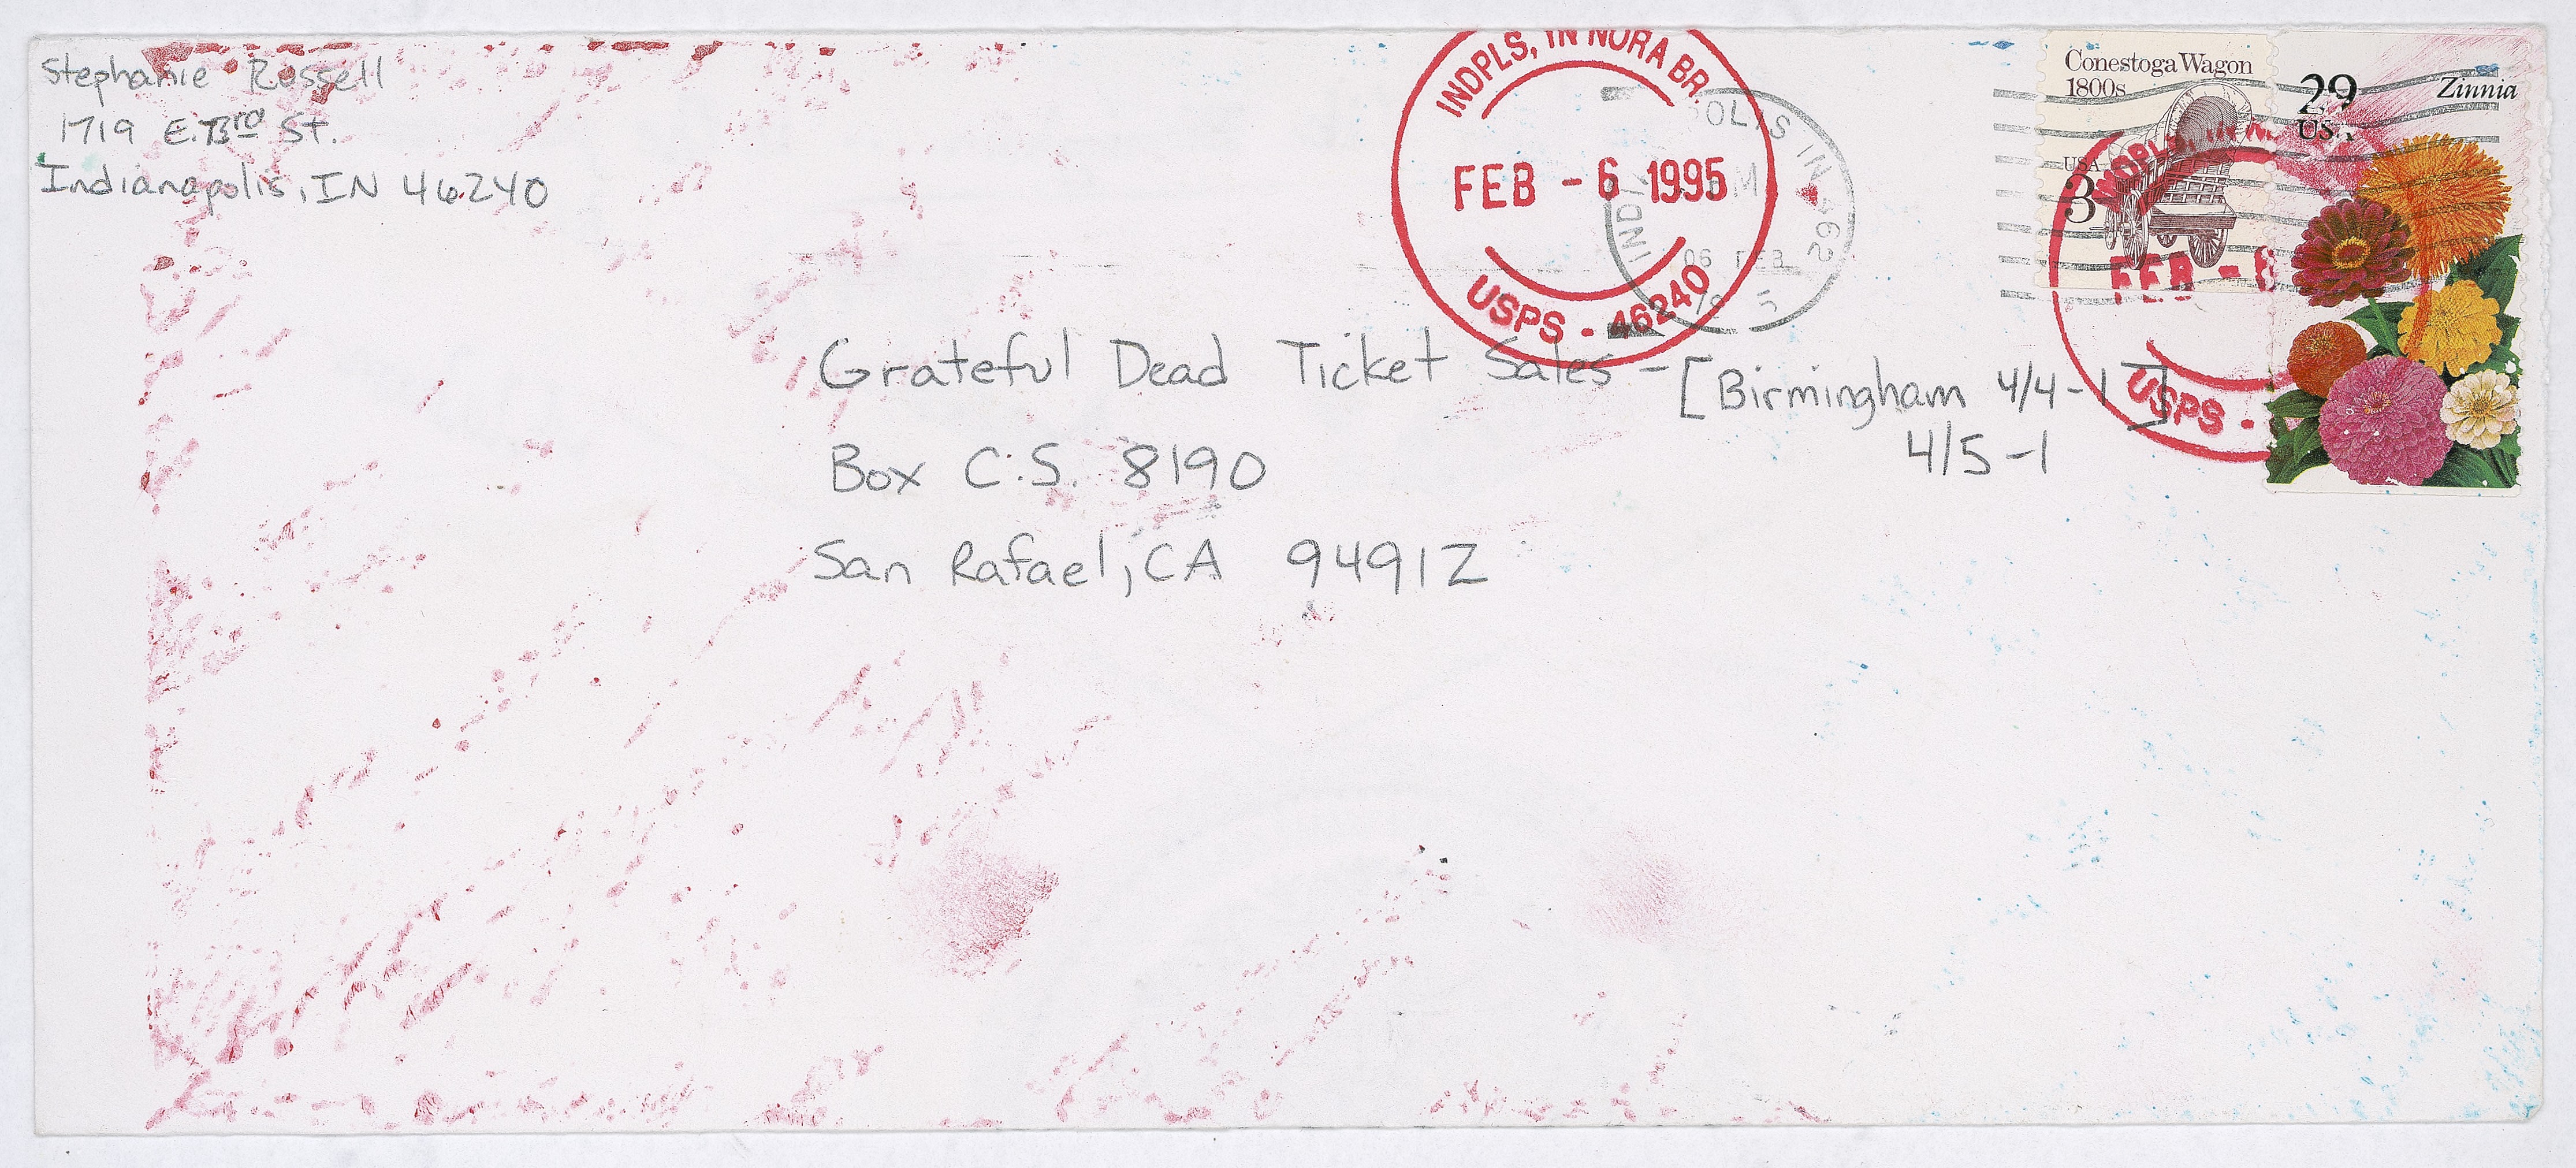 Stephanie Russell
1719 E. 73rd St.
Indianapolis, IN 46240
INDPLS, IN NORA BR.
FEB - 6 1995
USPS - 46240
OLIS IN 462
06 FEB
Conestoga Wagon
1800s
USA
3
29
US
Zinnia
FEB - 6
USPS -
Grateful Dead Ticket Sales - [Birmingham 4/4-1]
4/5-1
Box C.S. 8190
San Rafael, CA 94912